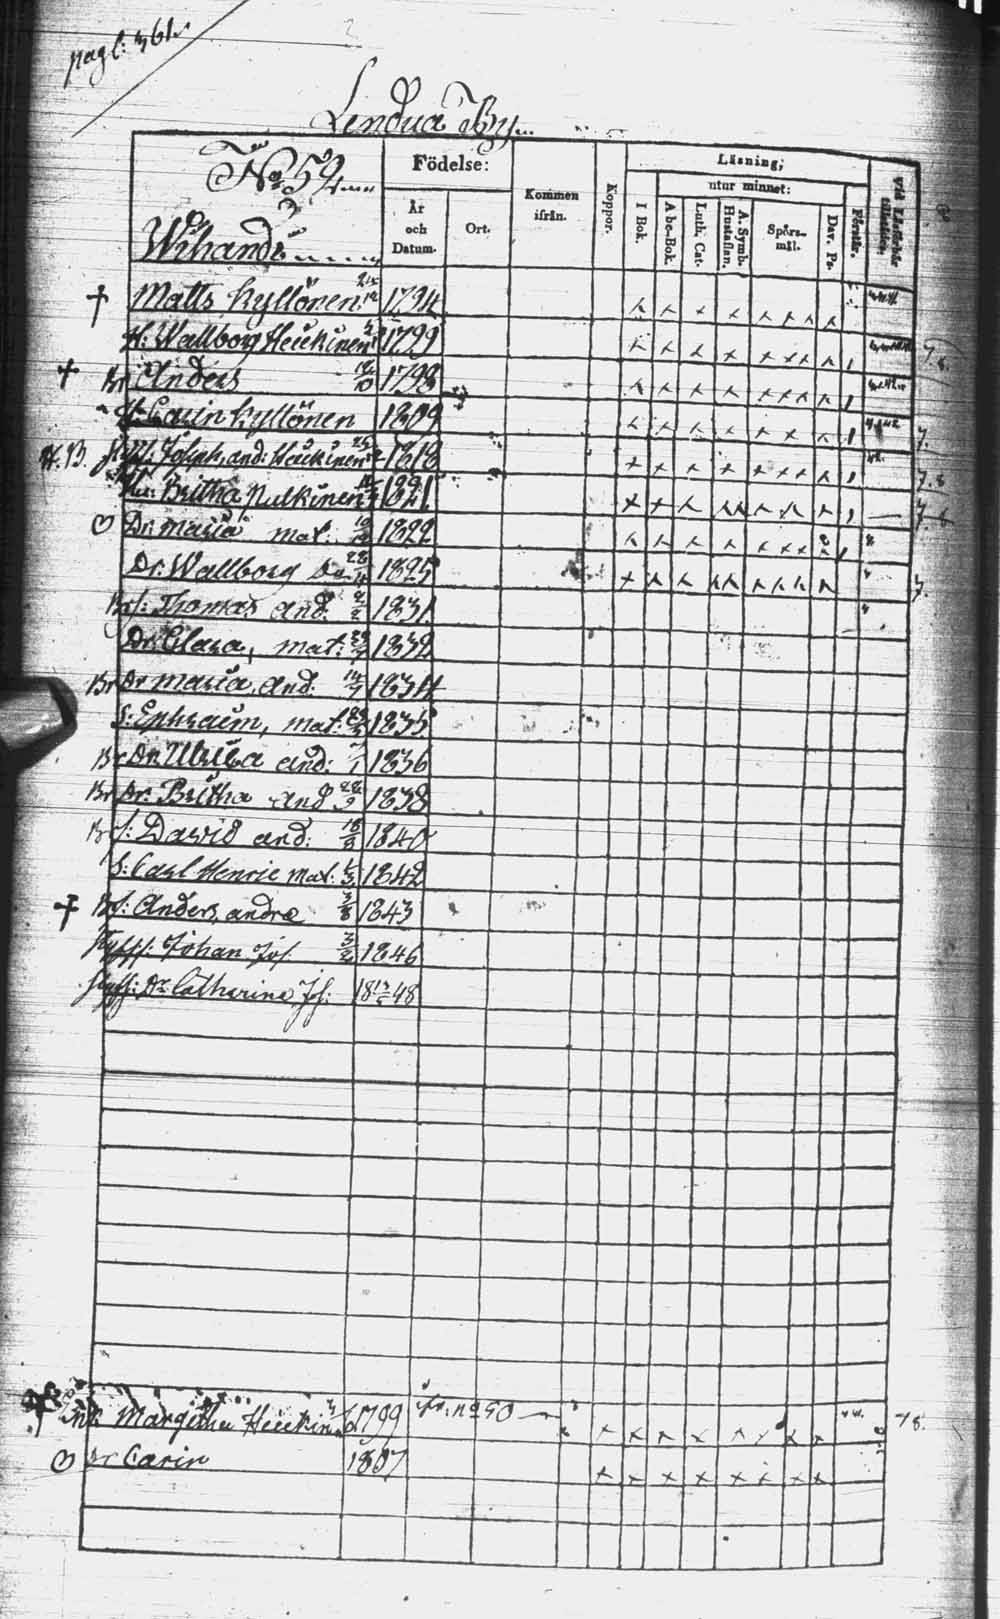 pag: 361
Lendua By
No 52
Födelse:
År och Datum.
Ort.
Kommen ifrån.
Koppor.
Läsning;
utur minnet:
I Bok.
A be-Bok.
Luth. Cat.
A. Symb. Hustaflan.
Spörs-mål.
Dav. Ps.
Förstår.
vid Läseförhör
Wihandi
† Matts Kyllönen 24/12 1794
H: Wallborg Heickinen 1799
† Br Anders /10 1798
H: Carin Kyllönen 1809
N.B. Joseph, and: Heickinen 1818
Hu: Britha Pulkinen 1821
Dr Maria mat: 1822
Dr. Wallborg 28/4 1825
Br s: Thomas and. 2/2 1831
Dr: Clara, mat: 1832
Br Dr Maria and: 14/7 1834
S: Ephraim, mat: 1835
Br Dr. Ulrika and: 1836
Br Dr: Britha and 28/9 1838
Br s: David and: 18/ 1840
S: Carl Henric Mat: 1842
† Br s: Anders andre 3/8 1843
Johan Jos. 3/2 1846
Dr Catharina Jos: 18 48
Margetha Heickin 1799 fr: no 50
Dr Carin 1807